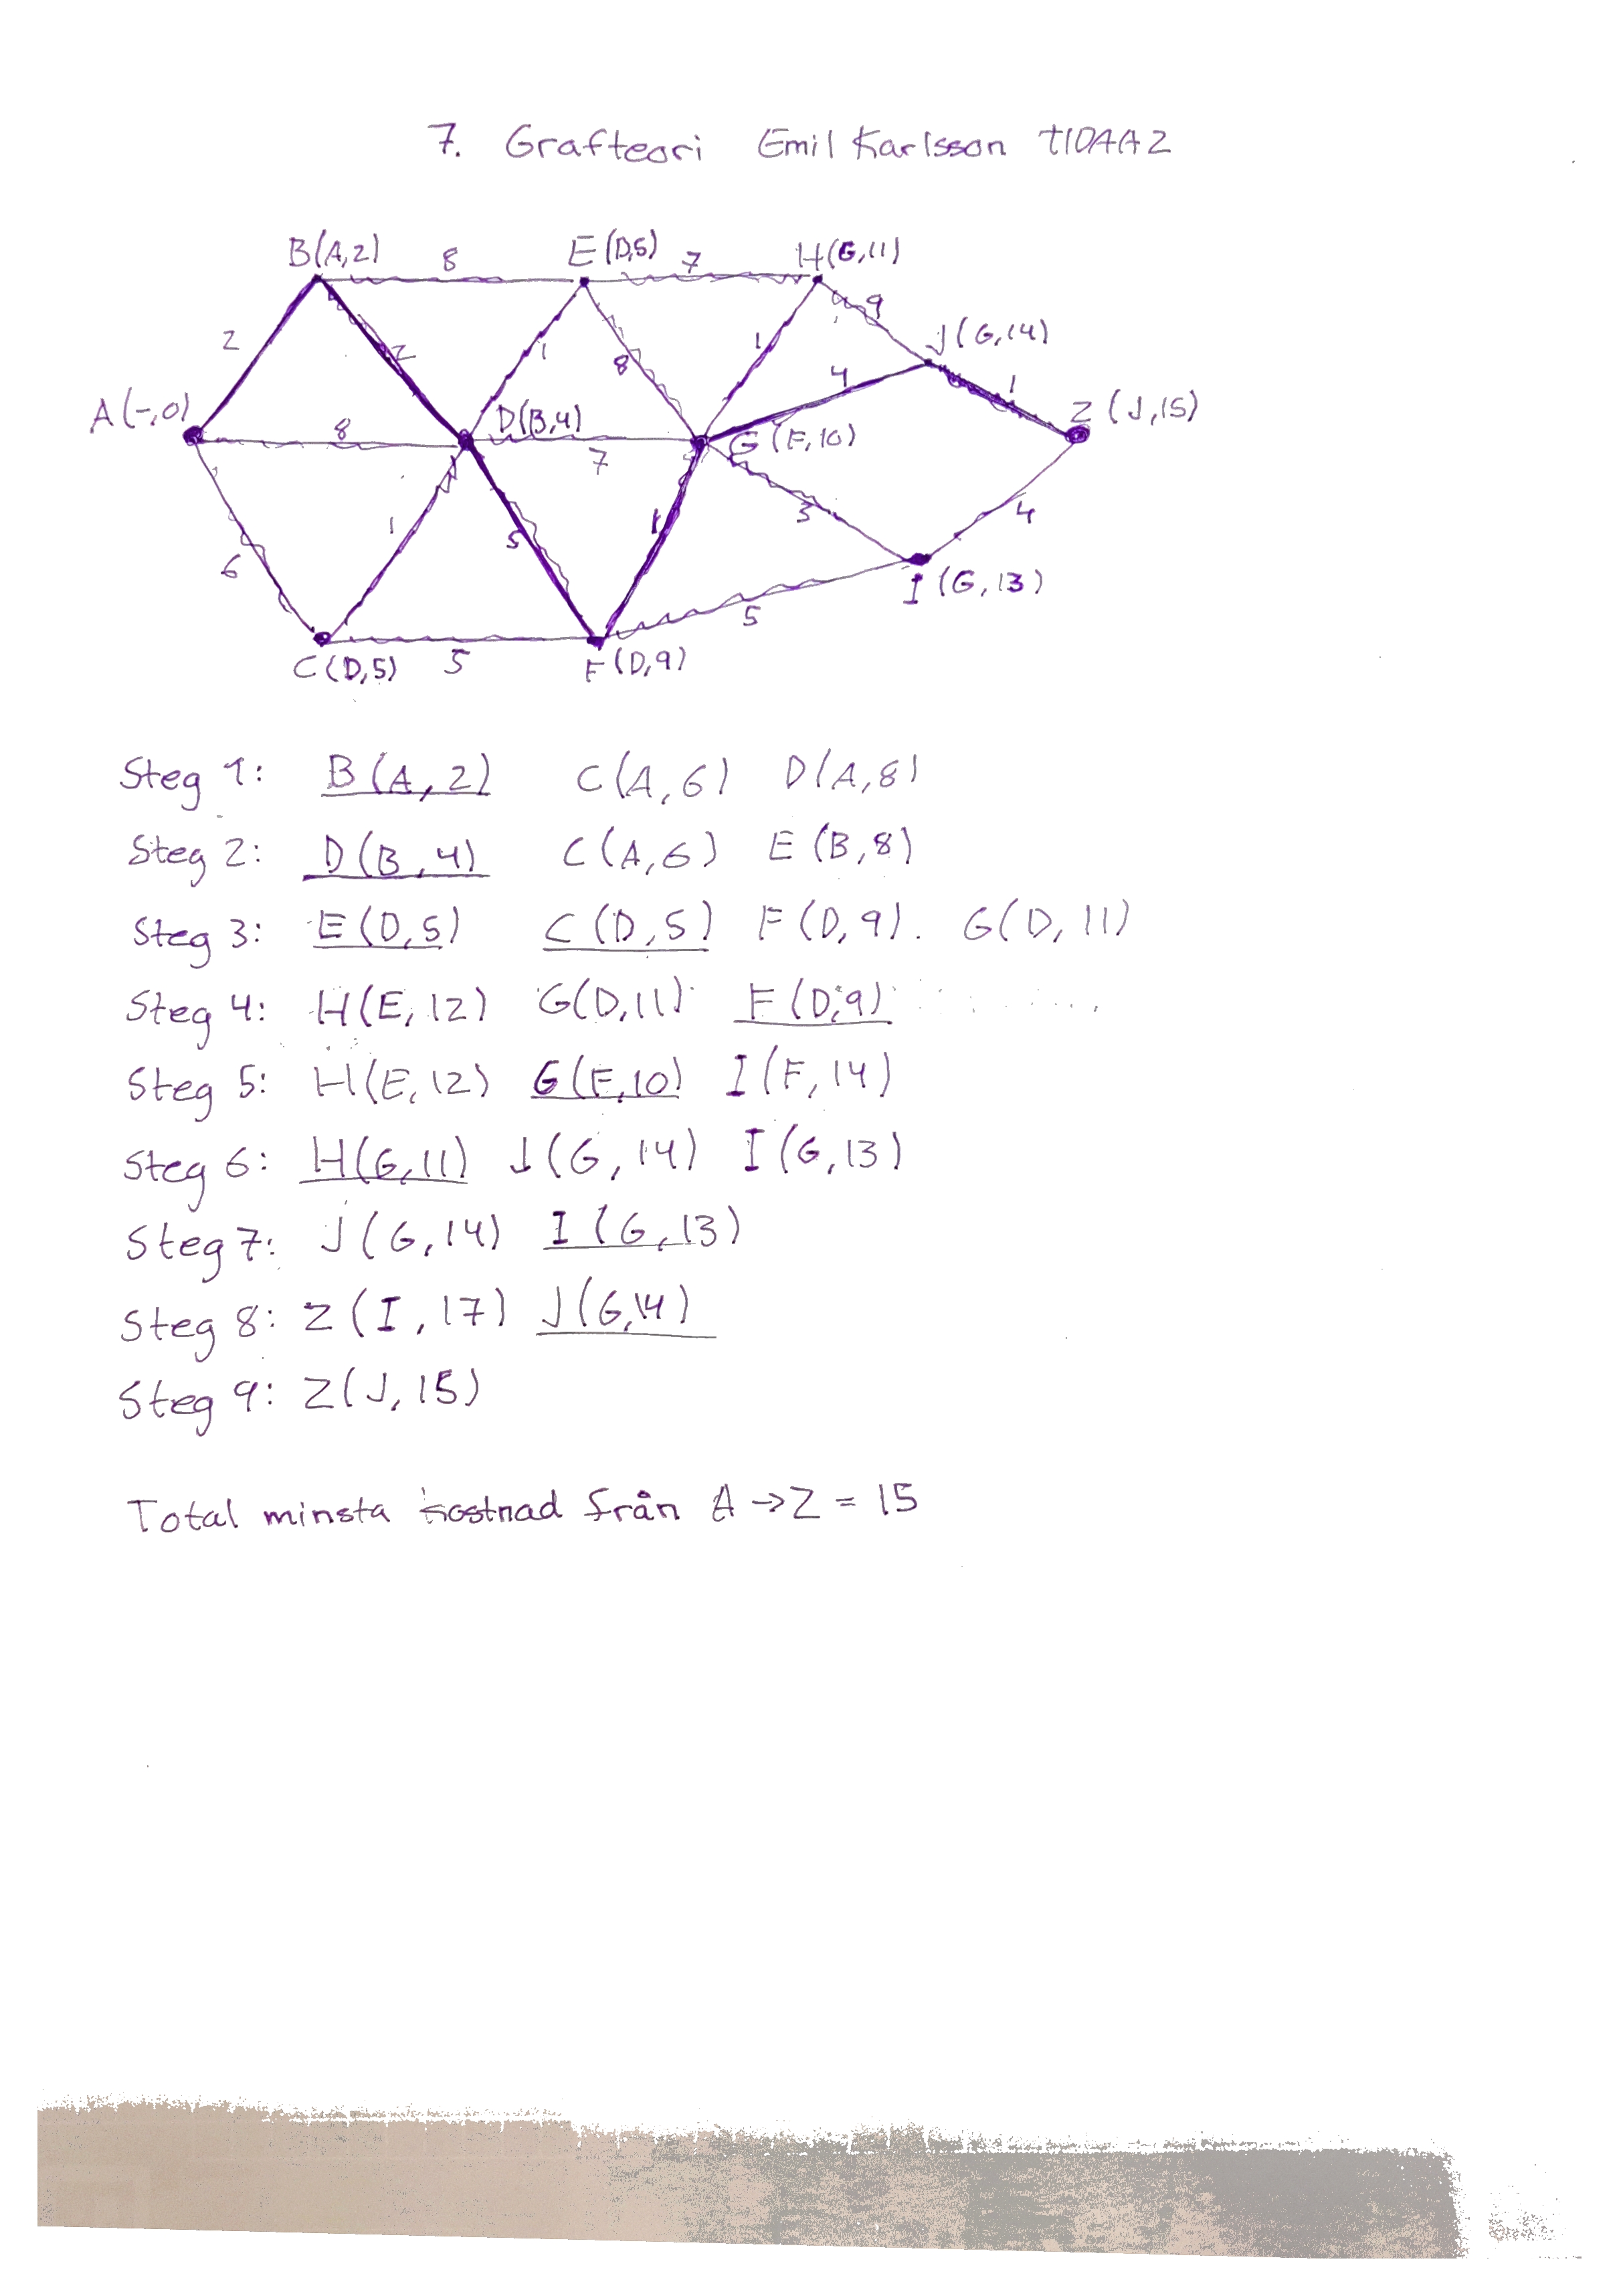 7. Grafteori Emil Karlsson TIDAA2
B(A,2) 8 E(D,5) 7 H(G,11)
9
2 2 1 8 1 J(G,14)
4 1
A(-,0) 8 D(B,4) 7 G(F,10) Z(J,15)
6 1 5 1 3 4
5 I(G,13)
C(D,5) 5 F(D,9)
Steg 1: B(A,2) C(A,6) D(A,8)
Steg 2: D(B,4) C(A,6) E(B,8)
Steg 3: E(D,5) C(D,5) F(D,9). G(D,11)
Steg 4: H(E,12) G(D,11) F(D,9)
Steg 5: H(E,12) G(F,10) I(F,14)
Steg 6: H(G,11) J(G,14) I(G,13)
Steg 7: J(G,14) I(G,13)
Steg 8: Z(I,17) J(G,14)
Steg 9: Z(J,15)
Total minsta kostnad från A->Z = 15